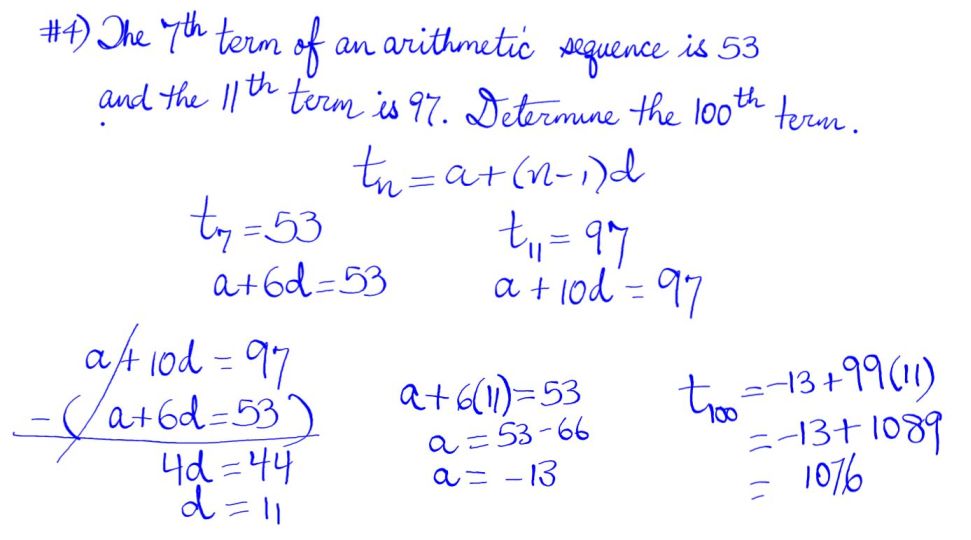 #4) The 7th term of an arithmetic sequence is 53
and the 11th term is 97. Determine the 100th term.
tn = a+(n-1)d
t7 = 53
t11 = 97
a+6d=53
a + 10d = 97
a + 10d = 97
-( a+6d=53 )
4d=44
d = 11
a+6(11)=53
a = 53-66
a = -13
t100 = -13+99(11)
= -13+1089
= 1076